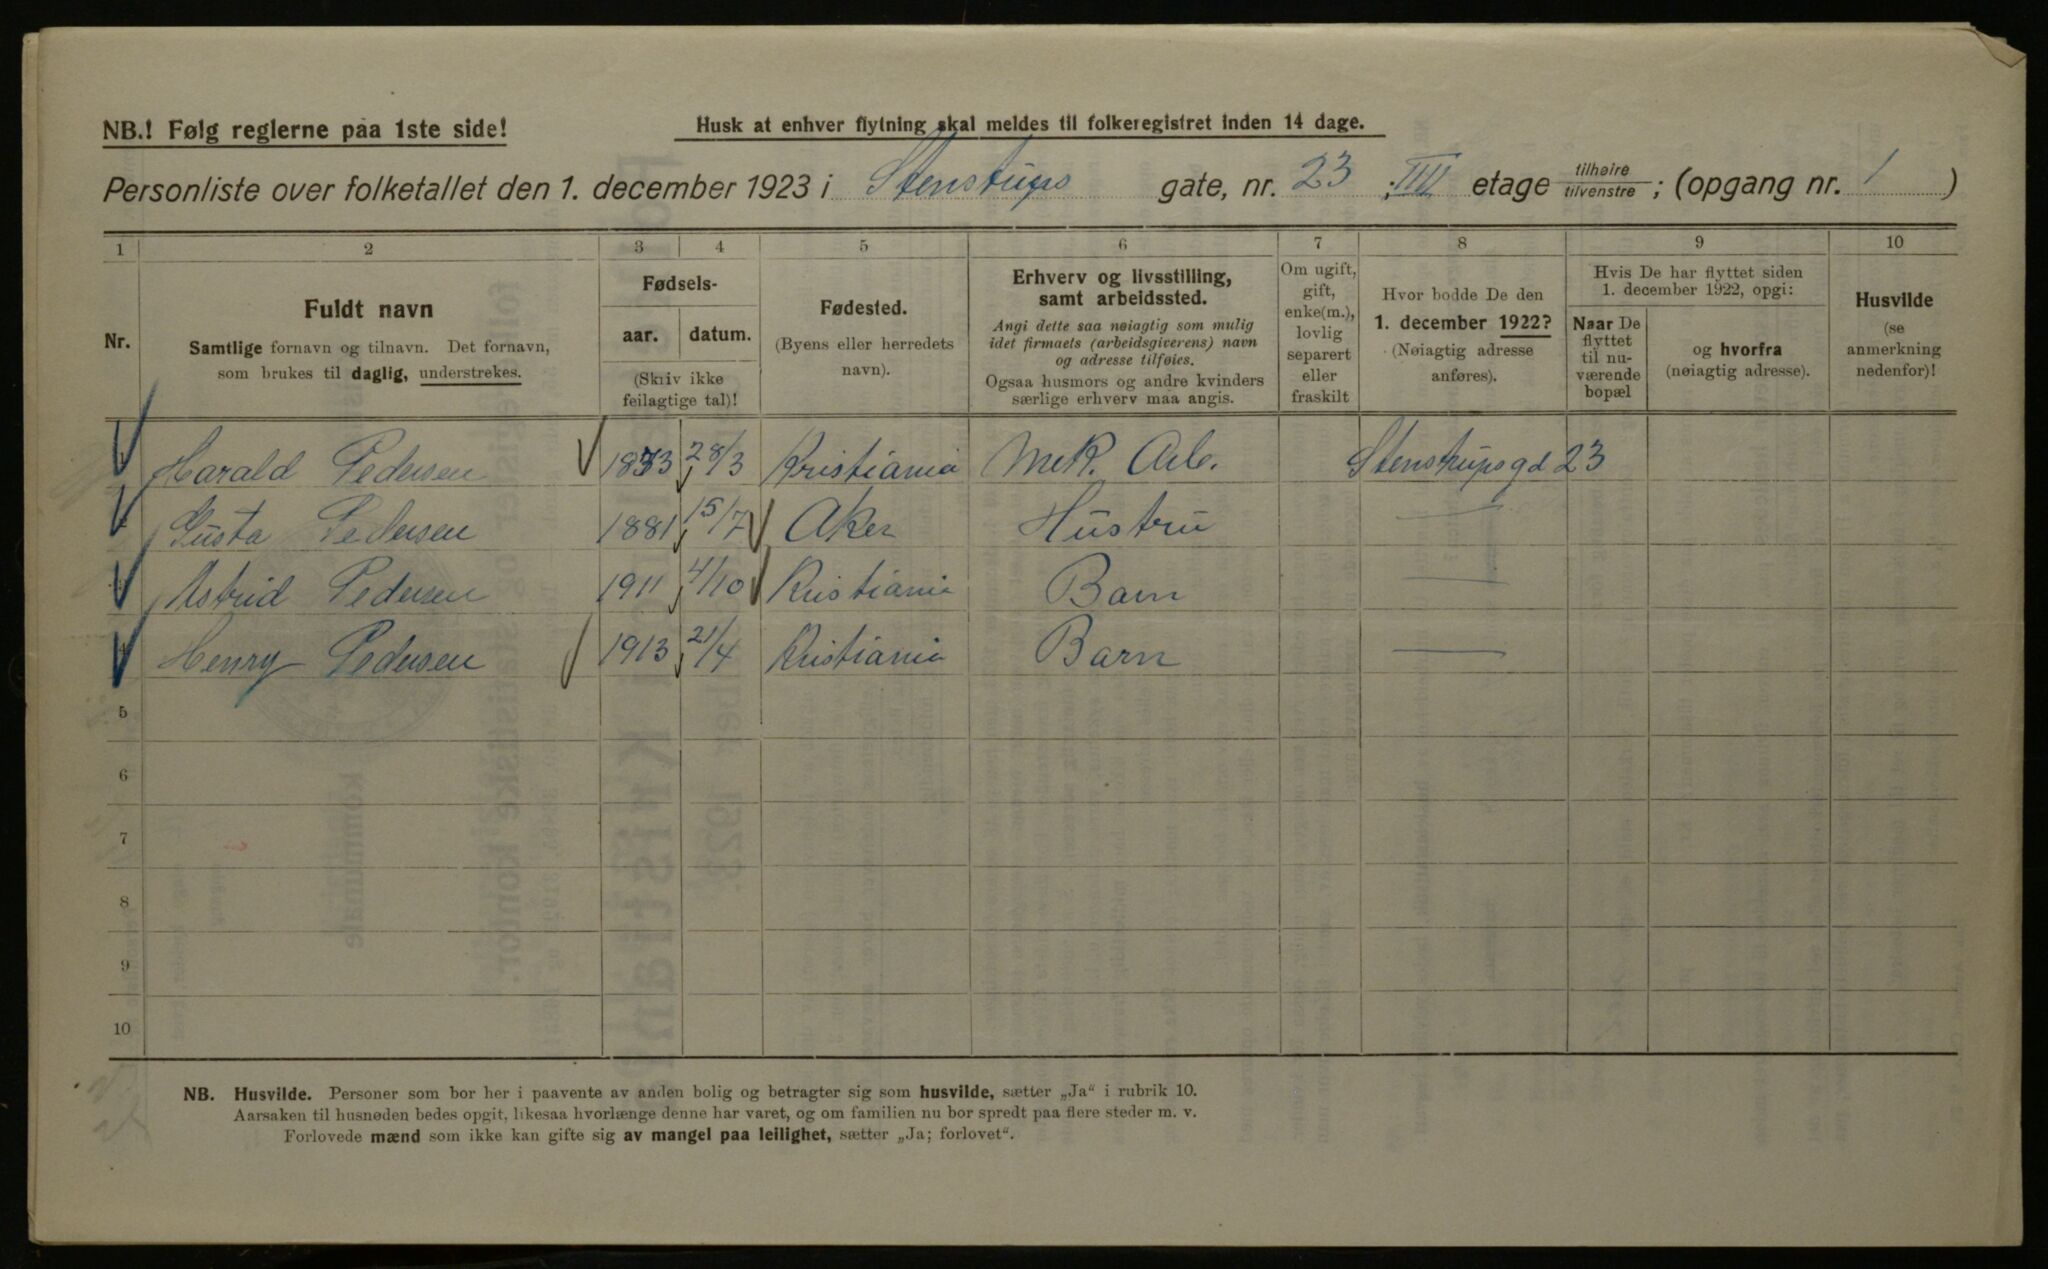 NB.! Følg reglerne paa 1ste side!
Husk at enhver flytning skal meldes til folkeregistret inden 14 dage.
Personliste over folketallet den 1. december 1923 i Stenstups gate, nr. 23 ; IIII etage tilhøire tilvenstre ; (opgang nr. 1 )
1 2 3 4 5 6 7 8 9 10
Nr.
Fuldt navn
Samtlige fornavn og tilnavn. Det fornavn,
som brukes til daglig, understrekes.
Fødsels-
aar. datum.
(Skriv ikke
feilagtige tal)!
Fødested.
(Byens eller herredets
navn).
Erhverv og livsstilling,
samt arbeidssted.
Angi dette saa nøiagtig som mulig
idet firmaets (arbeidsgiverens) navn
og adresse tilføies.
Ogsaa husmors og andre kvinders
særlige erhverv maa angis.
Om ugift,
gift,
enke(m.),
lovlig
separert
eller
fraskilt
Hvor bodde De den
1. december 1922?
(Nøiagtig adresse
anføres).
Hvis De har flyttet siden
1. december 1922, opgi:
Naar De
flyttet
til nu-
værende
bopæl
og hvorfra
(nøiagtig adresse).
Husvilde
(se
anmerkning
nedenfor)!
Harald Pedersen 1873 28/3 Kristiania Mek. Arb. Stenstrupsgd 23
Gusta Pedersen 1881 15/7 Aker Hustru —
Astrid Pedersen 1911 4/10 Kristiania Barn —
Henry Pedersen 1913 21/4 Kristiania Barn —
5
6
7
8
9
10
NB. Husvilde. Personer som bor her i paavente av anden bolig og betragter sig som husvilde, sætter „Ja“ i rubrik 10.
Aarsaken til husnøden bedes opgit, likesaa hvorlænge denne har varet, og om familien nu bor spredt paa flere steder m. v.
Forlovede mænd som ikke kan gifte sig av mangel paa leilighet, sætter „Ja; forlovet“.